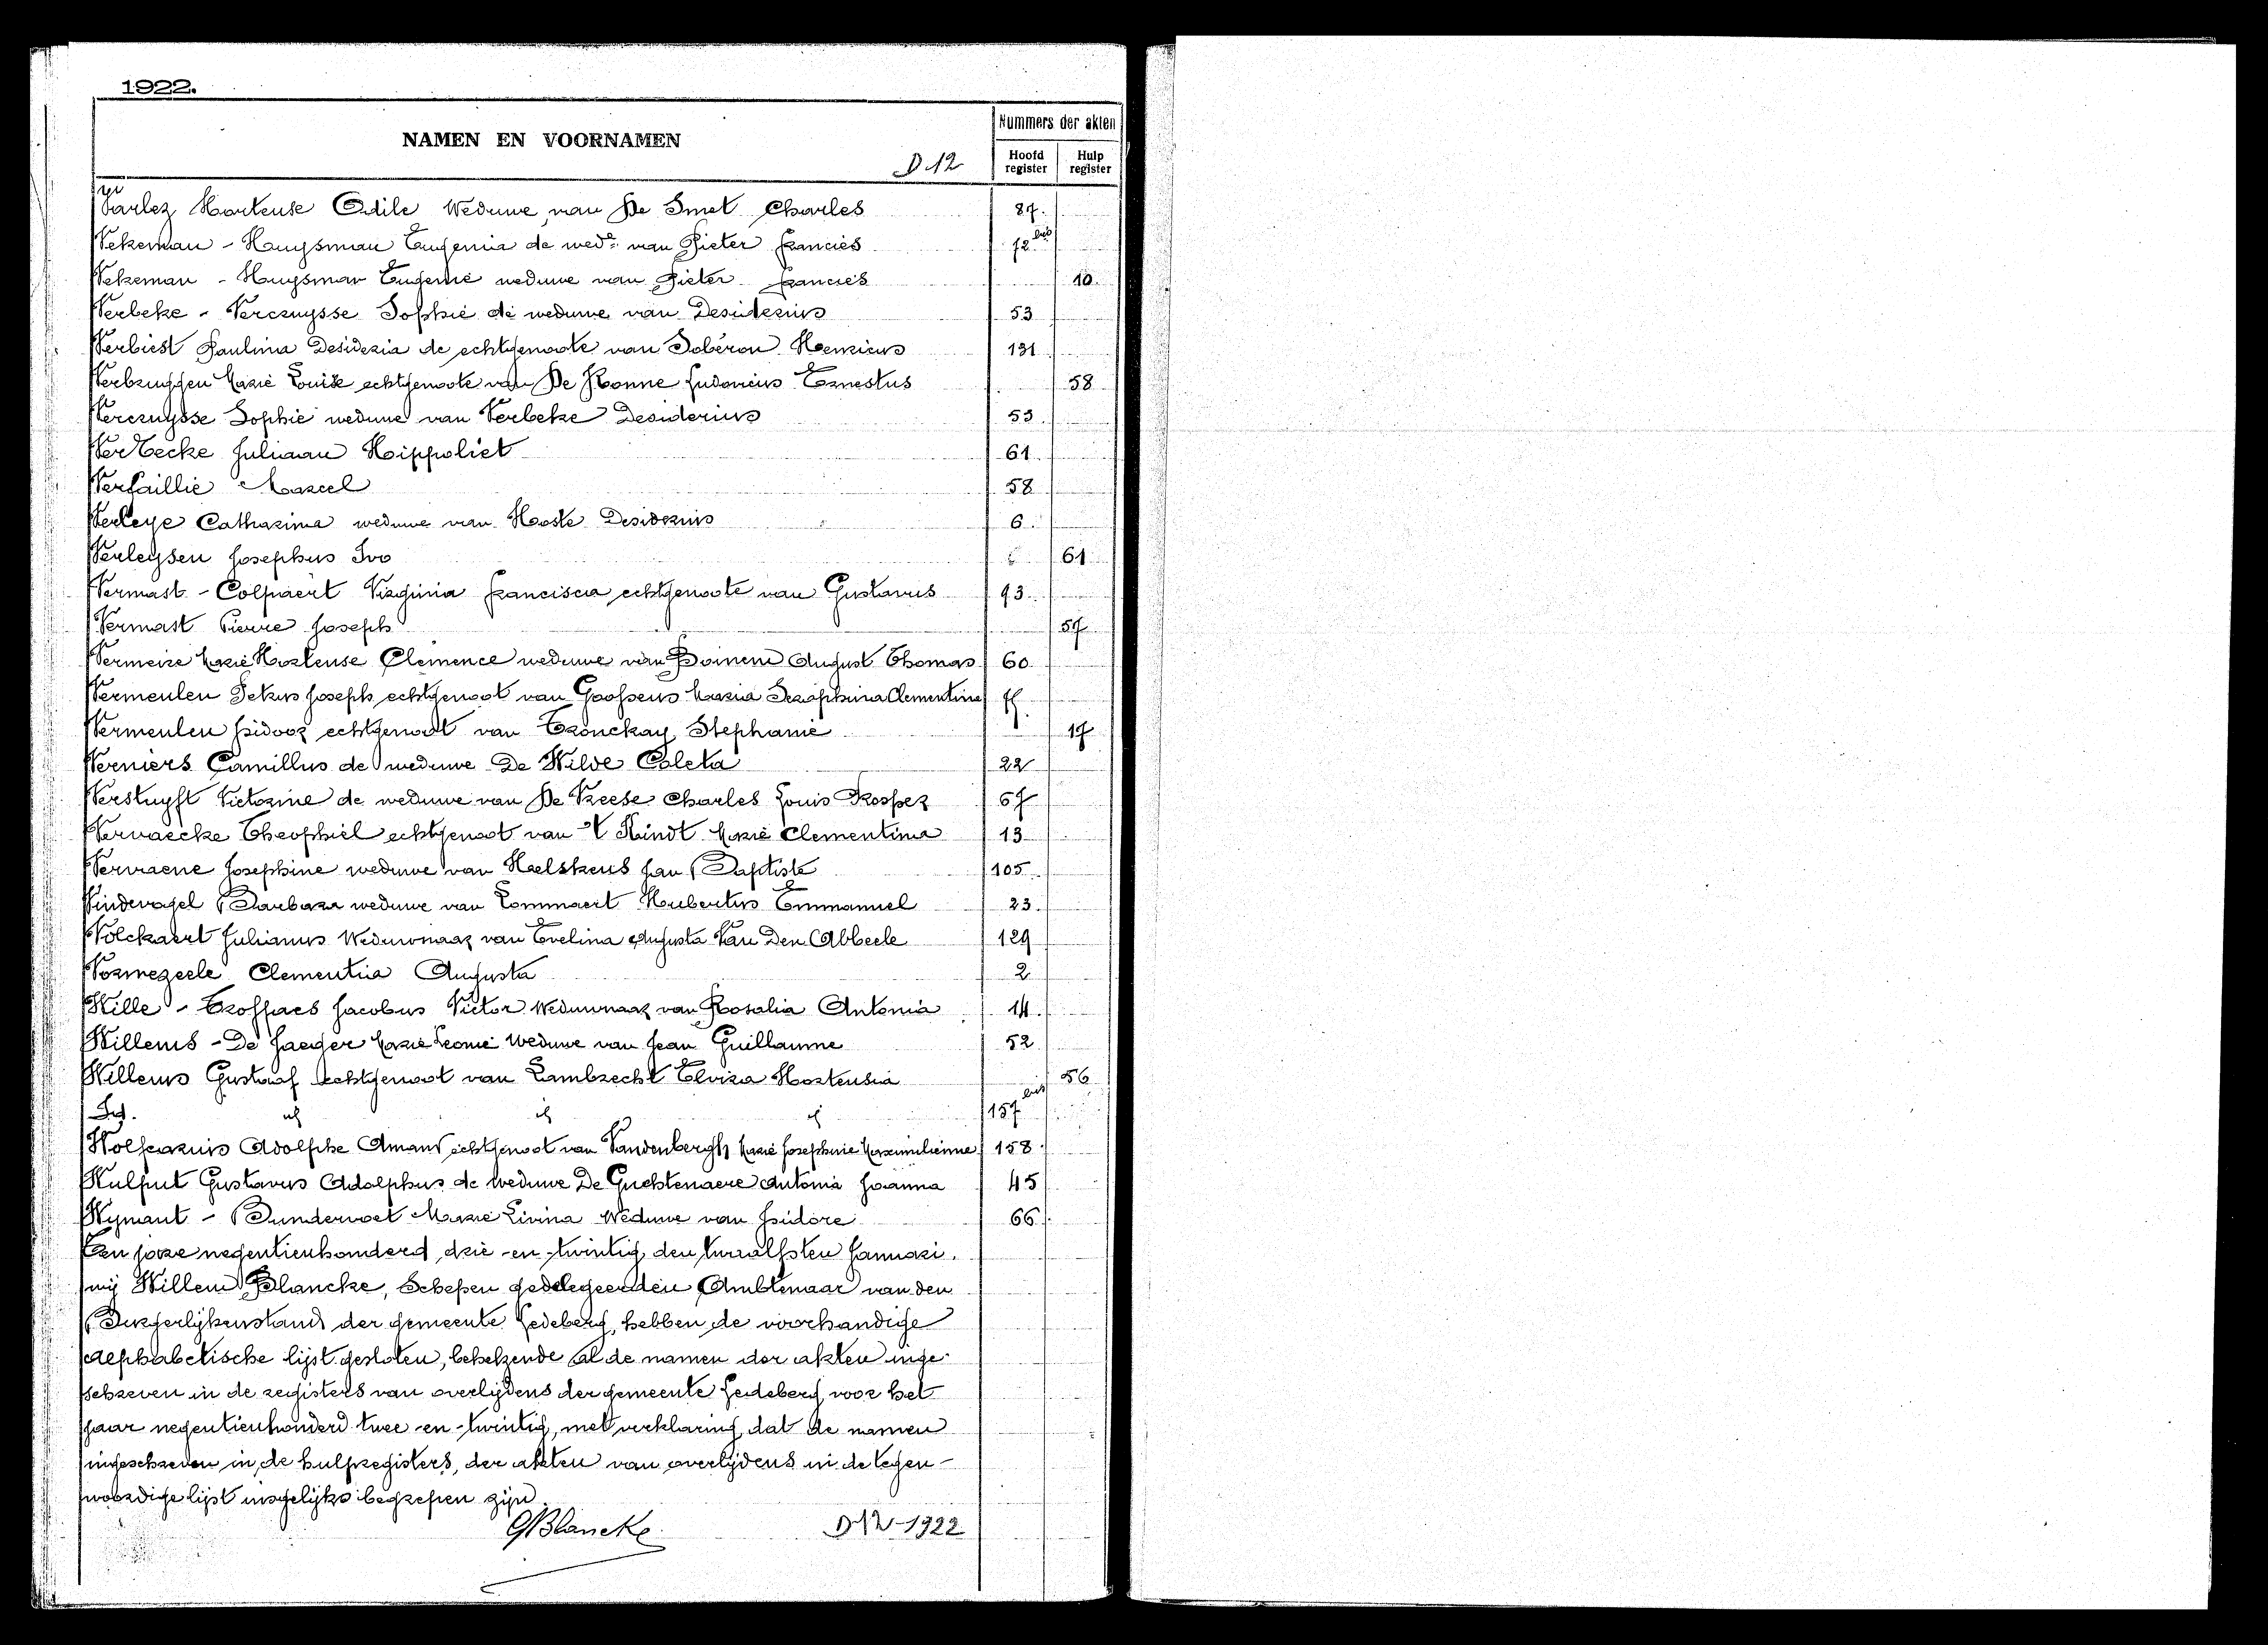 1922.
NAMEN EN VOORNAMEN
Nummers der akten
D 12
Hoofd register
Hulp register
Varlez Hortense Odile Weduwe van De Smet Charles 87
Vekeman - Huysman Eugenia de wede van Pieter Francies 72 bis
Vekeman - Huysman Eugenie weduwe van Pieter Francies 10
Verbeke - Vercruysse Sophie de weduwe van Desiderius 53
Verbiest Paulina Desideria de echtgenoote van Soberon Henricus 131
Verbruggen Marie Louise echtgenoote van De Nonne Ludovicus Ernestus 58
Vercruysse Sophie weduwe van Verbeke Desiderius 53
Verbecke Juliaan Hippoliet 61
Verfaillie Marcel 58
Verleye Catharina weduwe van Hooste Desiderius 6
Verleysen Josephus Ivo 61
Vermast - Colpaert Virginia Francisca echtgenoote van Gustavus 93
Vermast Pierre Joseph 57
Vermeire Marie Hortense Clemence weduwe van Boinem August Thomas 60
Vermeulen Petrus Joseph echtgenoot van Goossens Maria Seraphina Clementina
Vermeulen Isidoor echtgenoot van Tronckay Stephanie 17
Verniers Camillus de weduwe De Wilde Coleta 22
Verstuyft Victorine de weduwe van De Vreese Charles Louis Prosper 67
Vervaecke Theophiel echtgenoot van 'T Kindt Marie Clementina 13
Vervaene Josephine weduwe van Haelskens Jan Baptiste 105
Vindevogel Barbara weduwe van Lommaert Hubertus Emmanuel 23
Volckaert Julianus Weduwnaar van Evelina Augusta Van Den Abbeele 129
Vormezeele Clementia Augusta 2
Wille - Troffaes Jacobus Victor Weduwnaar van Rosalia Antonia 14
Willems - De Jaeger Marie Leonie Weduwe van Jean Guillaume 52
Willems Gustaaf echtgenoot van Lambrecht Elvira Hortensia 56
Id. id id id 157 bis
Wolfcarius Adolphe Amand echtgenoot van Vandenbergh Marie Josephine Maximilienne 158
Wulput Gustavus Adolphus de weduwe De Guchtenaere Antonia Joanna 45
Wymant - Dundervoet Marie Livina Weduwe van Isidore 66
Ten jare negentienhonderd drie-en-twintig, den twaalfsten Januari.
wij Willem Blancke, Schepen gedelegeerden Ambtenaar van den
Burgerlijkenstand der gemeente Ledeberg, hebben de voorhandige
alphabetische lijst gesloten, behelzende al de namen der akten inge-
schreven in de registers van overlijdens der gemeente Ledeberg voor het
jaar negentienhonderd twee-en-twintig, met verklaring dat de namen
ingeschreven in de hulpregisters, der akten van overlijdens in de tegen-
woordige lijst insgelijks begrepen zijn.
GBlancke D 12 - 1922